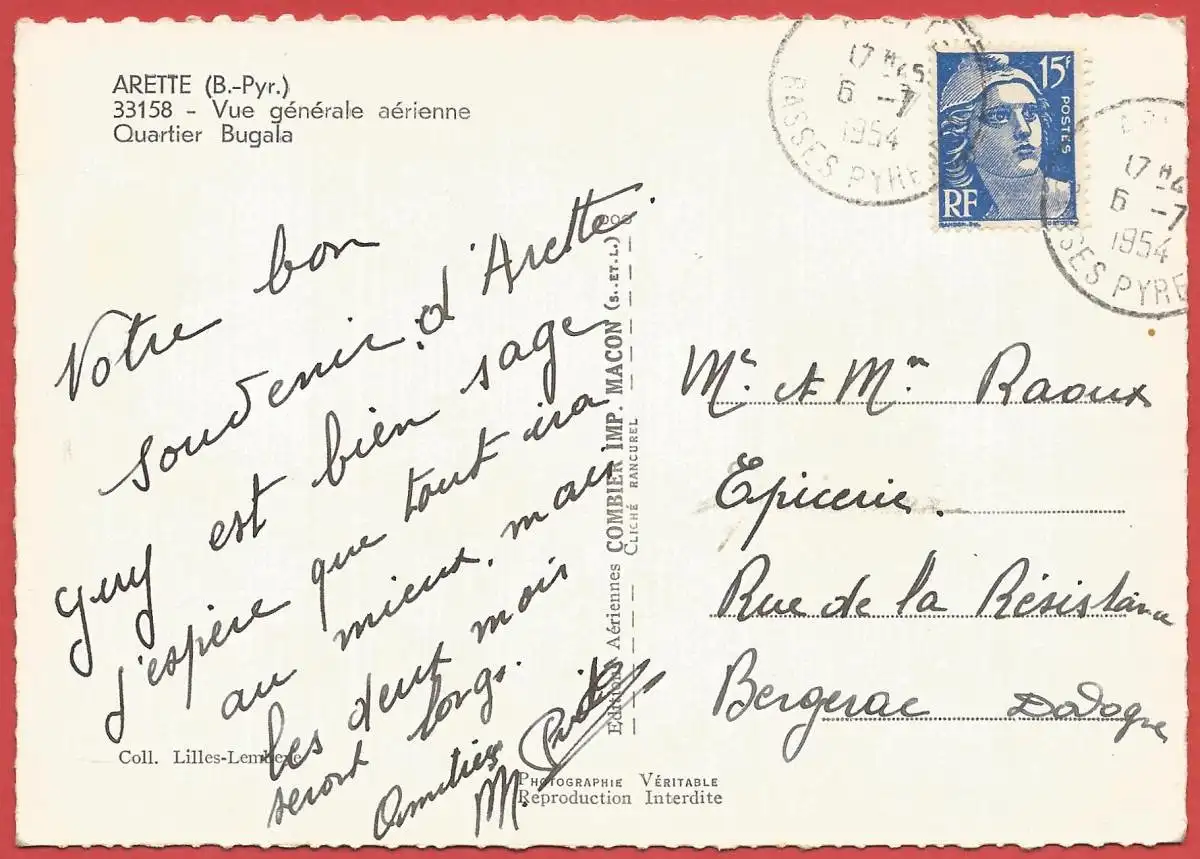 ARETTE (B.-Pyr.)
33158 - Vue générale aérienne
Quartier Bugala
17 H45
6 -7
1954
BASSES PYRE
15F
POSTES
RF
17 H4
6 -7
1954
SSES PYRE
Votre bon
souvenir d'Arette.
Guy est bien sage
j'espère que tout ira
au mieux, mais
les deux mois
seront longs.
Amitiés
M.
Coll. Lilles-Lembeye
Editions Aériennes COMBIER IMP. MACON (S.-ET-L.)
CLICHÉ RANCUREL
PHOTOGRAPHIE VÉRITABLE
Reproduction Interdite
Mr et Mm Raoux
Epicerie.
Rue de la Résistance
Bergerac Dodogne